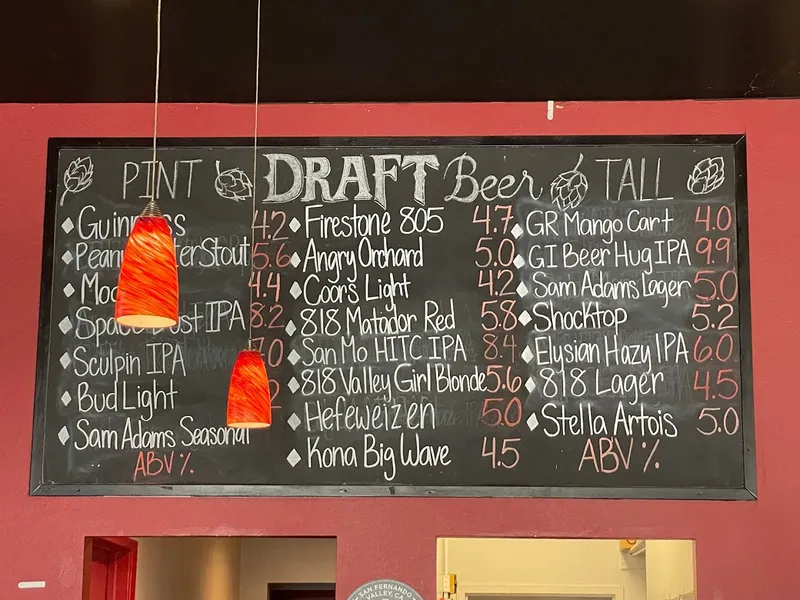 PINT DRAFT Beer TALL
Guinness 4.2
Stout 5.6
4.4
IPA 8.2
Sculpin IPA 7.0
Bud Light
Sam Adams Seasonal
ABV %
Firestone 805 4.7
Angry Orchard 5.0
Coors Light 4.2
818 Matador Red 5.8
San Mo HITC IPA 8.4
818 Valley Girl Blonde 5.6
Hefeweizen 5.0
Kona Big Wave 4.5
GR Mango Cart 4.0
GI Beer Hug IPA 9.9
Sam Adams Lager 5.0
Shocktop 5.2
Elysian Hazy IPA 6.0
818 Lager 4.5
Stella Artois 5.0
ABV %
SAN FERNANDO
VALLEY, CA